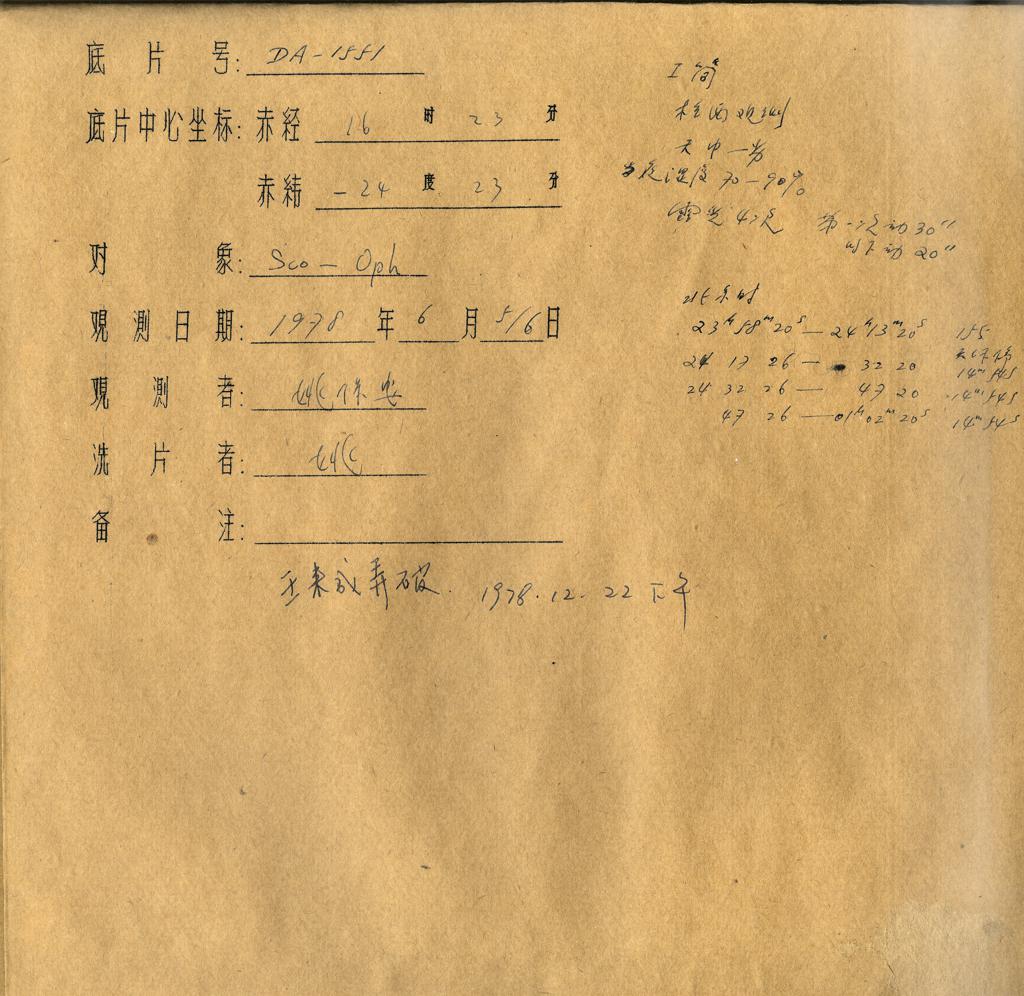 底片号: DA-1551
底片中心坐标: 赤经 16 时 23 分
赤纬 -24 度 23 分
对象: Sco - Oph
观测日期: 1978 年 6 月 5/6 日
观测者: 姚保安
洗片者: 姚
备注:
弄破. 1978.12.22 下午
I 筒
柱西观测
天中一劳
湿度 70-90%
露光 4次 第一次动 30"
以下动 20"
北京时
23h 58m 20s — 24h 13m 20s 155
24 17 26 — 32 20 14m 54s
24 32 26 — 47 20 14m 54s
47 26 — 01h 02m 20s 14m 54s